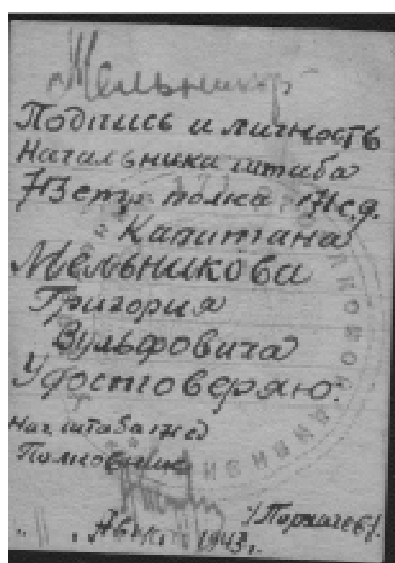 Мельников
Подпись и личность
Начальника штаба
713 стр. полка 171 с.д.
Капитана
Мельникова
Григория
Вульфовича
Удостоверяю.
Нач. штаба 171 сд
Полковник
1943г.